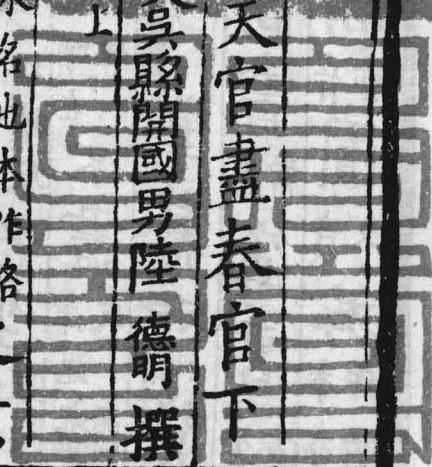 天官盡春官下
吳縣開國男陸德明撰
上
名也本作絡